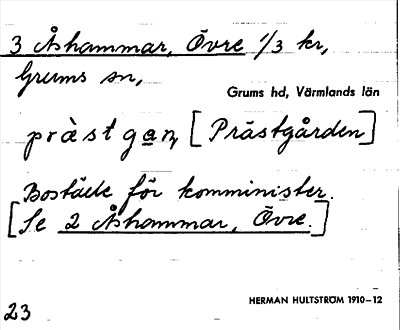 3 Åshammar, Övre 1/3 kr,
Grums sn,
Grums hd, Värmlands län
pràstgan, [Prästgården]
Boställe för komminister.
[Se 2 Åshammar, Övre.]
HERMAN HULTSTRÖM 1910–12
23